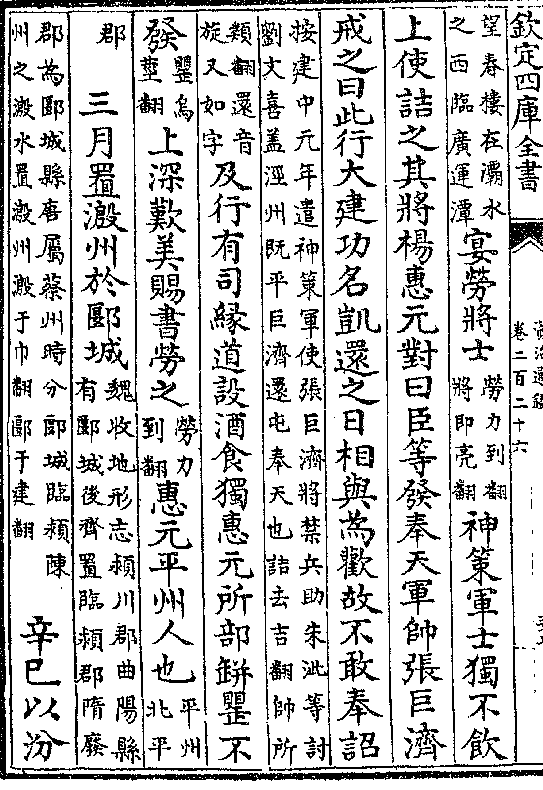 欽定四庫全書
資治通鑑
卷二百二十六
望春樓在灞水
之西臨廣運潭
宴勞將士
勞力到翻
將即亮翻
神策軍士獨不飲
上使詰之其將楊惠元對曰臣等發奉天軍帥張巨濟
戒之曰此行大建功名凱還之日相與為歡故不敢奉詔
按建中元年遣神策軍使張巨濟將禁兵助朱泚等討
劉文喜盖涇州既平巨濟還屯奉天也詰去吉翻帥所
類翻還音
旋又如字
及行有司緣道設酒食獨惠元所部缾罌不
發
罌烏
莖翻
上深歎美賜書勞之
勞力
到翻
惠元平州人也
平州
北平
郡
三月置溵州於郾城
魏收地形志潁川郡曲陽縣
有郾城後齊置臨潁郡隋廢
郡為郾城縣唐屬蔡州時分郾城臨潁陳
州之溵水置溵州溵于巾翻郾于建翻
辛巳以汾